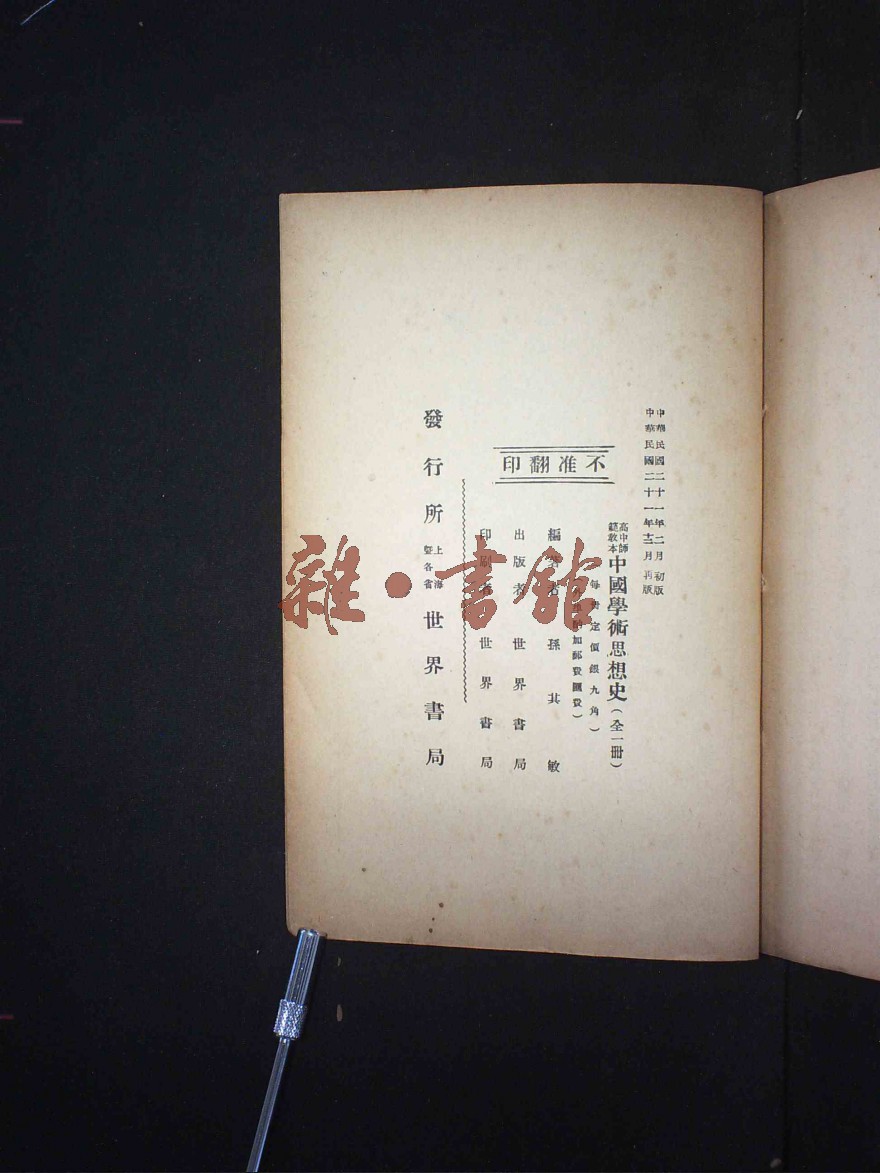 中華民國二十一年二月初版
中華民國二十一年十二月再版
高中師範教本 中國學術思想史（全一冊）
每 定價銀九角）
加郵費匯費）
不准翻印
編著者 孫其敏
出版者 世界書局
印刷 世界書局
發行所 上海暨各省 世界書局
雜·書館